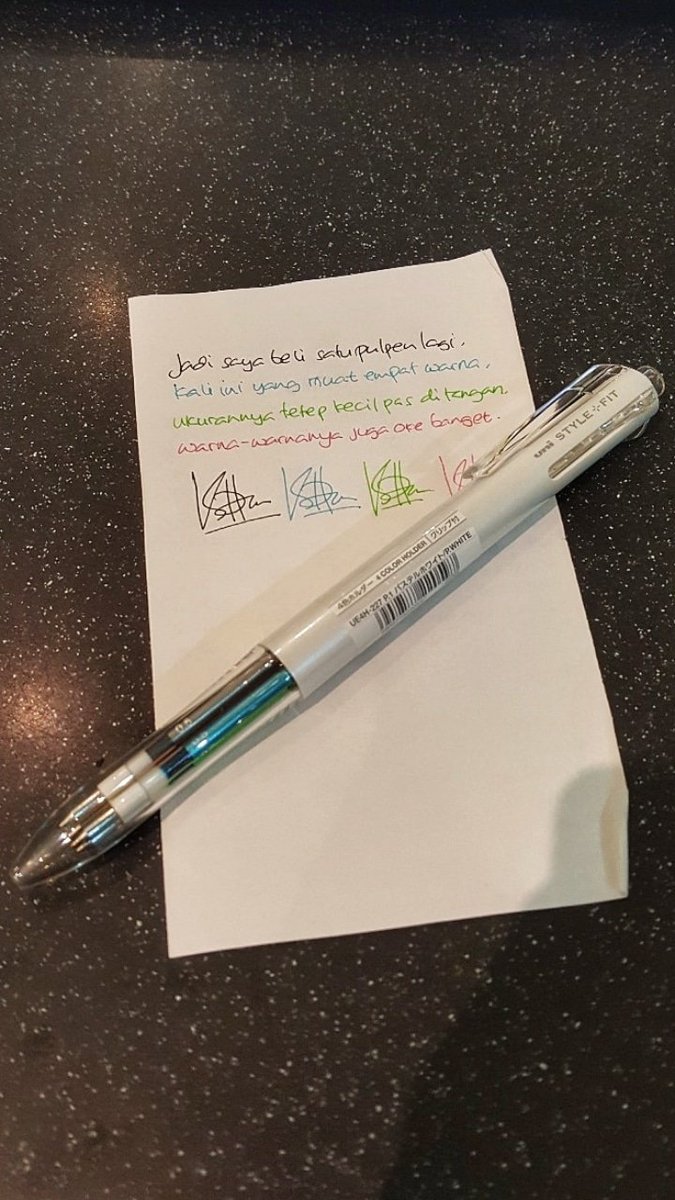 Jadi saya beli satu pulpen lagi.
kali ini yang muat empat warna.
ukurannya tetep kecil pas di tangan
warna-warnanya juga oke banget.
uni STYLE FIT
4色ホルダー 4 COLOR HOLDER クリップ付
UE4H-227 P.1 パステルホワイト/P.WHITE